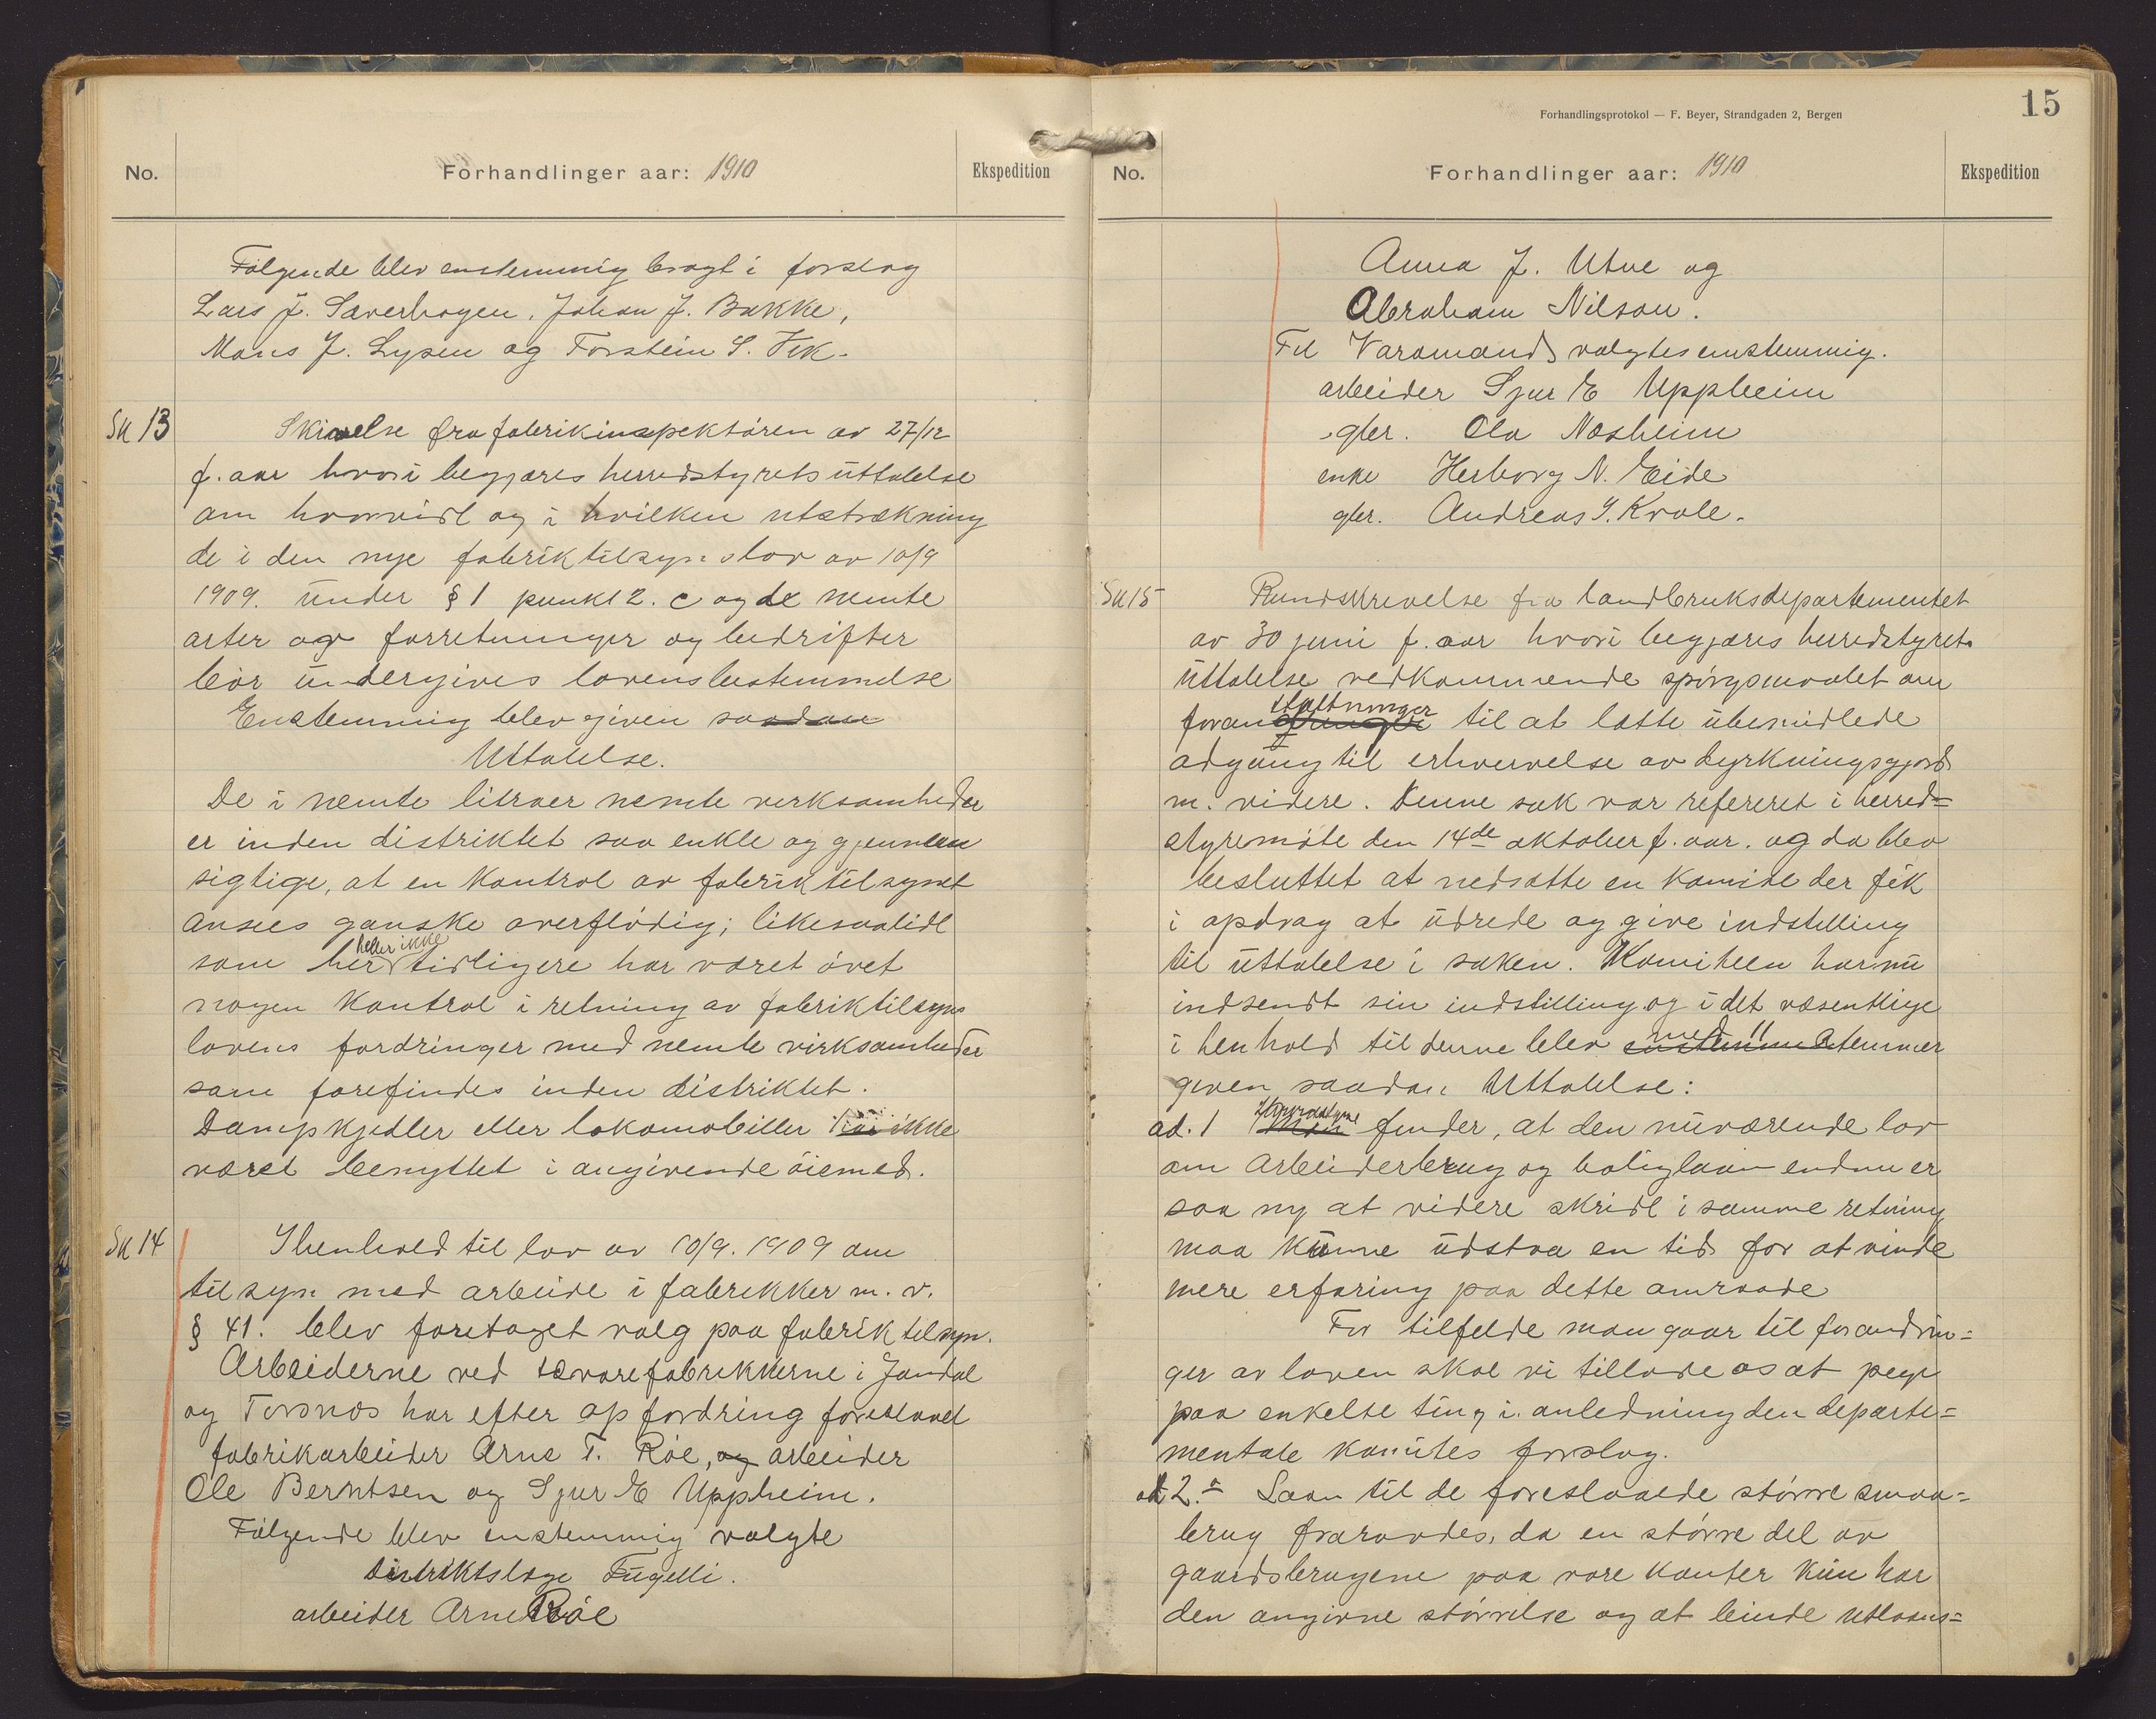 No.
Forhandlinger aar: 1910
Ekspedition
Følgende blev enstemmig bragt i forslag
Lars J. Saverhagen, Johan J. Bakke,
Mons J. Lysen og Torstein S. Vik.
Sk 13
Skrivelse fra fabrikinspektören av 27/12
f. aar hvori begjæres herredstyrets üttalelse
om hvorvidt og i hvilken utstrækning
de i den nye fabriktilsynslov av 10/9
1909. ünder § 1 punkt 2. c og de nemte
arter av forretninger og bedrifter
bör ündergives lovens bestemmelse
Enstemmig blev given saadan
Uttalelse.
De i nemte litraer nemte verksomheder
er inden distriktet saa enkle og gjennem
sigtige, at en kontrol av fabriktilsynet
ansees ganske overflödig; likesaalidt
som her heller ikke tidligere har været övet
nogen kontrol i retning av fabriktilsyns
lovens fordringer med nemte virksomheder
som forefindes inden distriktet.
Dampkjedler eller lokomobiller har ikke
været benyttet i angivende öiemed.
Sk 14
I henhold til lov av 10/9. 1909 om
tilsyn med arbeide i fabrikker m. v.
§ 41. blev foretaget valg paa fabriktilsyn.
Arbeiderne ved tævarefabrikkerne i Jondal
og Torsnæs har efter opfordring foreslaaet
fabrikarbeider Arne T. Röe, og arbeider
Ole Berntsen og Sjur E Uppheim.
Følgende blev enstemmig valgte
Distriktslæge Fügelli.
arbeider Arne Röe
Forhandlingsprotokol — F. Beyer, Strandgaden 2, Bergen
15
No.
Forhandlinger aar: 1910
Ekspedition
Anna J. Utne og
Abraham Nilson.
Til Varamænd valgtes enstemmig.
arbeider Sjur E Uppheim
gbr. Ola Næsheim
enke Herborg N. Eide
gbr. Andreas J. Kvale.
Sk 15
Rundskrevelse fra landbruksdepartementet
av 30 juni f. aar hvori begjæres herredstyrets
üttalelse vedkommende spörgsmaalet om
foranstaltninger til at lætte übemidlede
adgang til erhvervelse av dyrkningsgjord
m. videre. Denne sak var refereret i herred=
styremöte den 14de oktober f. aar. og da blev
besluttet at nedsætte en komite der fik
i opdrag at üdrede og give indstelling
til üttalelse i saken. Komiteen har nü
indsendt sin indstilling og i det væsentlige
i henhold til denne blev med 11 stemmer
given saadan Uttalelse:
ad. 1 Herredstyre finder, at den nüværende lov
om Arbeiderbrug og boliglaan endnu er
saa ny at videre skridt i samme retning
maa künne üdstaa en tid for at vinde
mere erfaring paa dette omraade
For tilfelde man gaar til forandrin=
ger av loven skal vi tillade os at pege
paa enkelte ting i anledning den departe=
mentale komites forslag.
ad 2.a Laan til de foreslaaede större smaa=
brug fraraades, da en större del av
gaardsbrugene paa vore kanter kün har
den angivne störrelse og at binde utlaans=